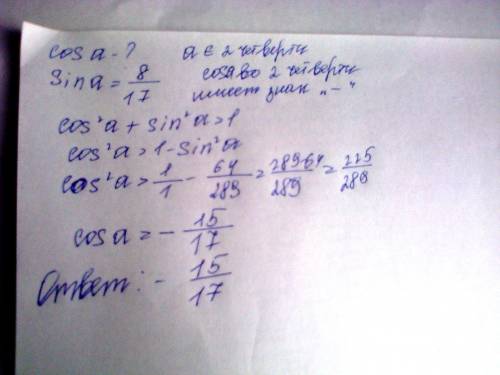 cos a - ? a ∈ 2 четверти
sin a = 8/17 cos a во 2 четверти
имеет знак „-“
cos²a + sin²a = 1
cos²a = 1 - sin²a
cos²a = 1/1 - 64/289 = 289-64/289 = 225/289
cos a = - 15/17
Ответ: - 15/17